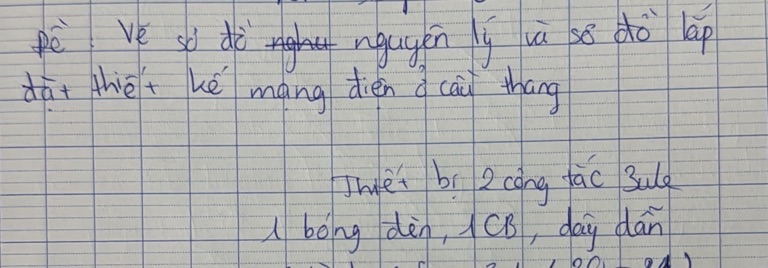 Đề. Vẽ sơ đồ nghu nguyên lý và sơ đồ lắp
đặt thiết kế mạng điện ở cầu thang
Thiết bị 2 công tắc 3
1 bóng đèn, 1CB, dây dẫn